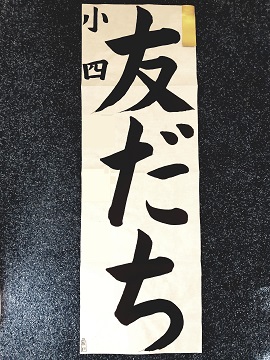 友だち
小四